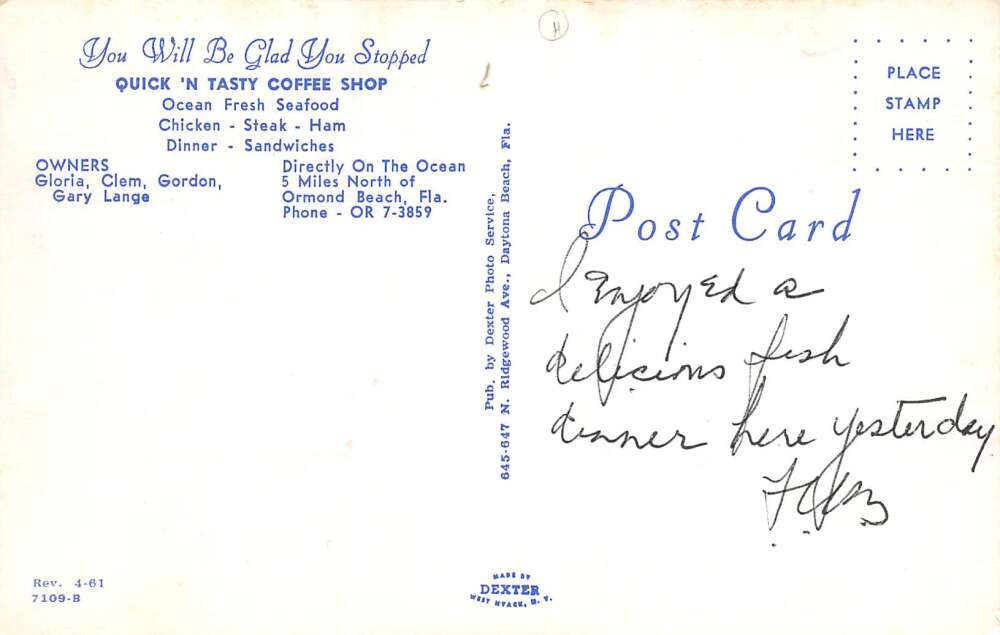 You Will Be Glad You Stopped
QUICK 'N TASTY COFFEE SHOP
Ocean Fresh Seafood
Chicken - Steak - Ham
Dinner - Sandwiches
OWNERS
Gloria, Clem, Gordon,
Gary Lange
Directly On The Ocean
5 Miles North of
Ormond Beach, Fla.
Phone - OR 7-3859
Pub. by Dexter Photo Service,
645-647 N. Ridgewood Ave., Daytona Beach, Fla.
H
PLACE
STAMP
HERE
Post Card
I Enjoyed a
delicious fish
dinner here yesterday
Rev. 4-61
7109-B
MADE BY
DEXTER
WEST NYACK, N. Y.